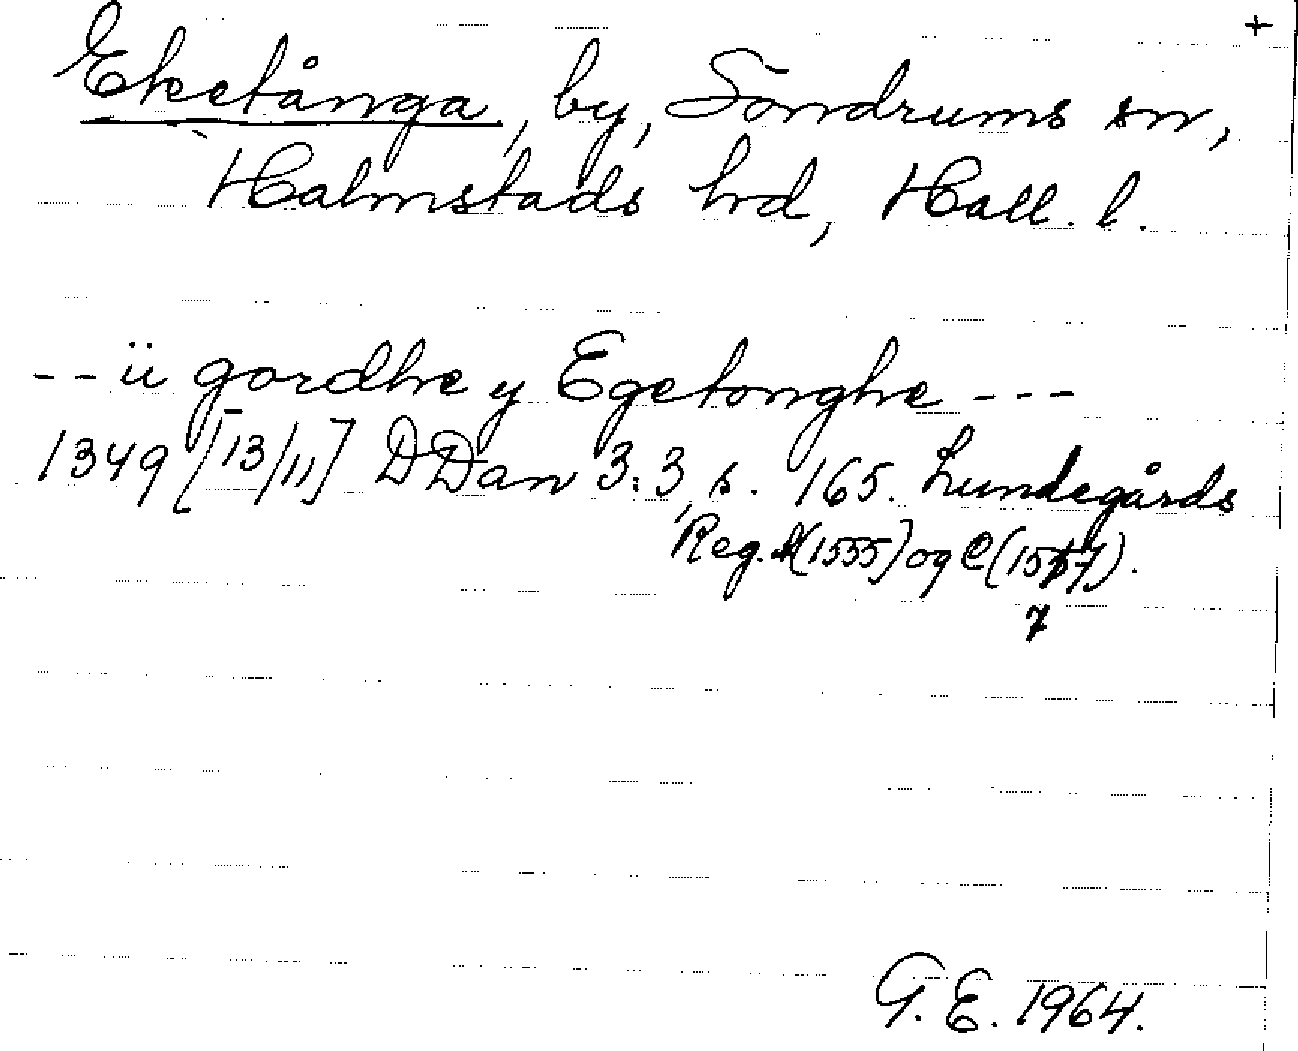 +
Eketånga, by, Söndrums sn,
Halmstads hrd, Hall. l.
-- ii gordhe y Egetonghe ---
1349 [13/11] DDan 3:3, s. 165. Lundegårds
Reg. A(1555) og C(1577).
7
G. E. 1964.